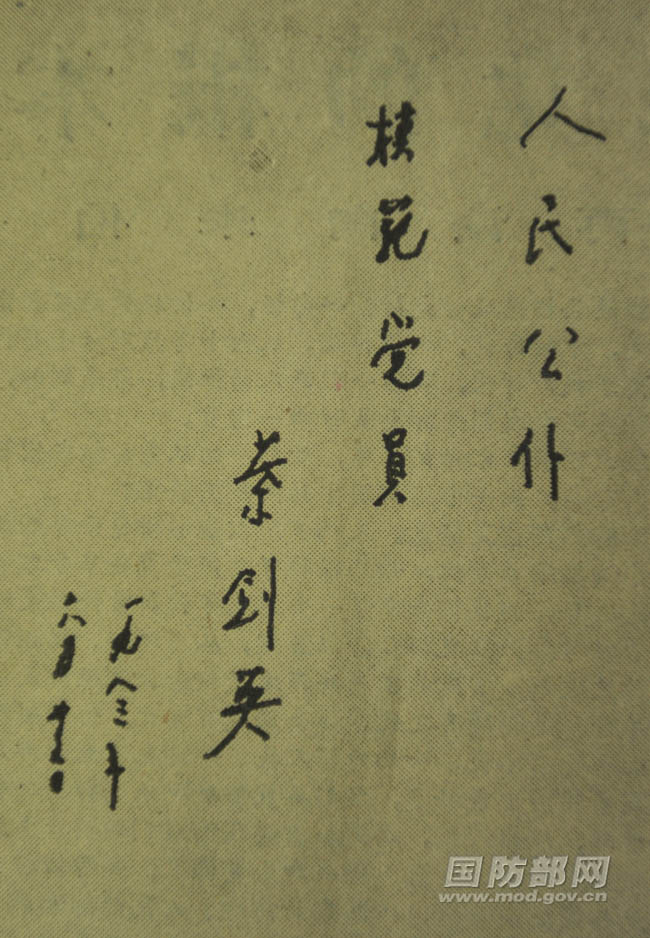 人民公仆
模范党員
葉剑英
一九八三年
六月十五日
国防部网
www.mod.gov.cn